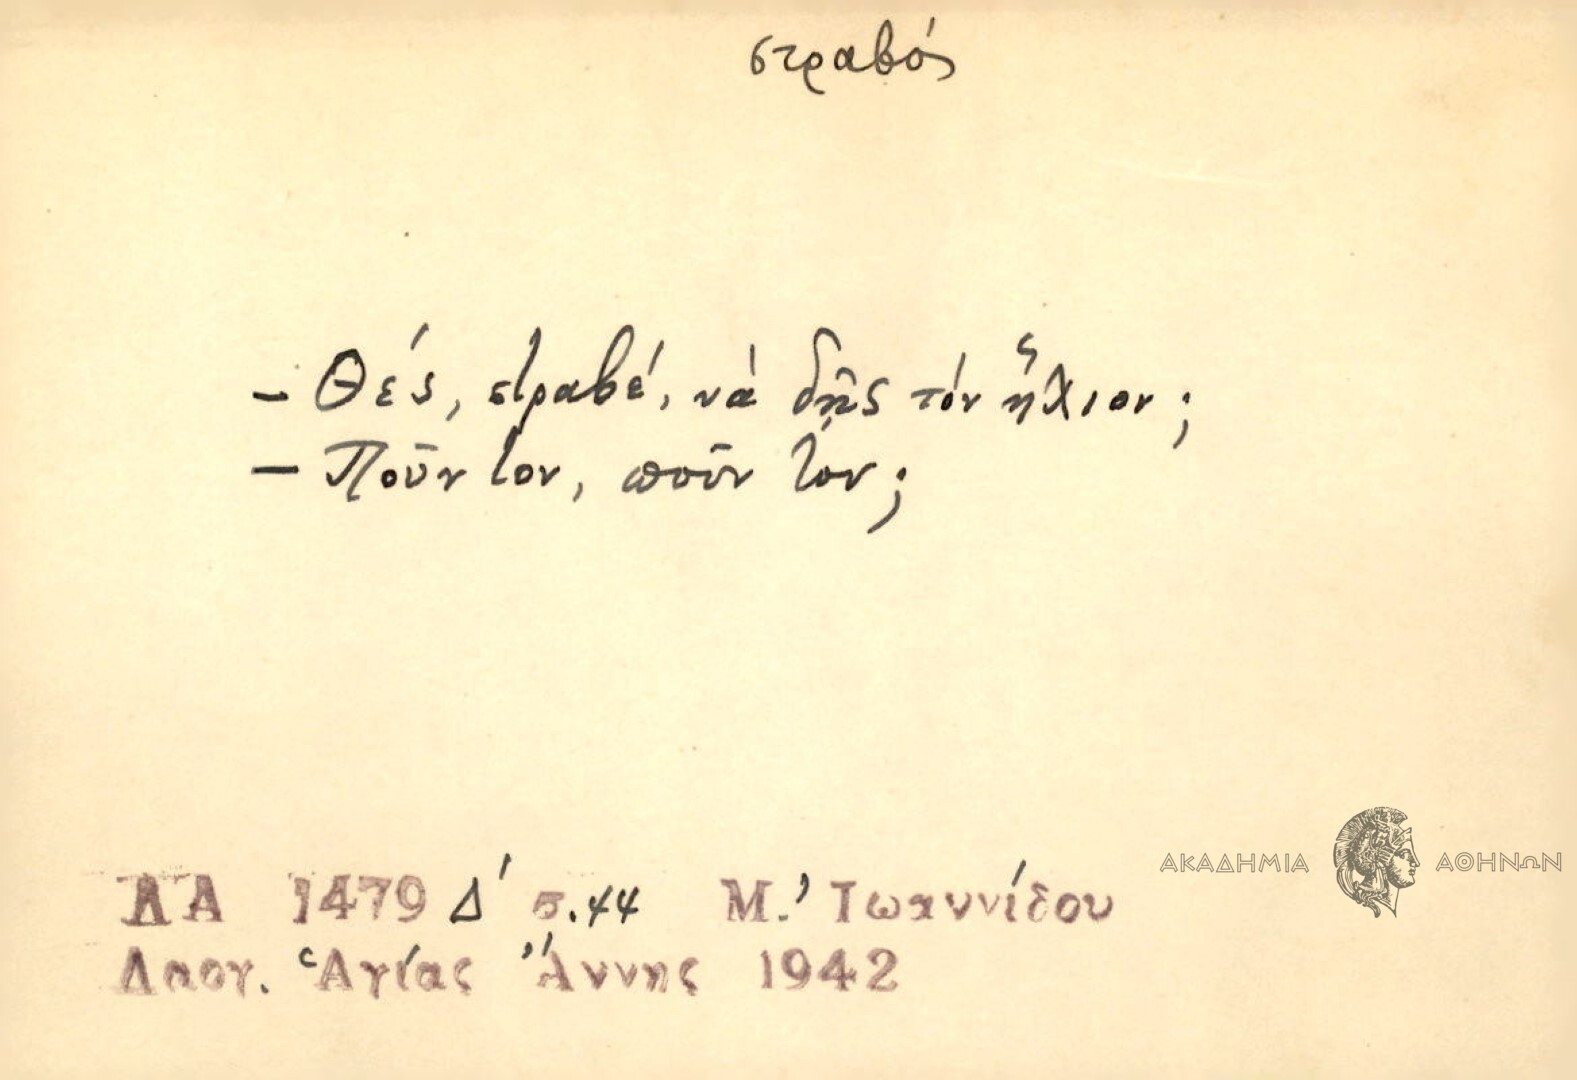 στραβός
- Θές, στραβέ, νά δῇς τόν ἥλιον;
- Ποῦν τον, ποῦν τόν;
ΛΑ 1479 Δ' σ.44 Μ. Ἰωαννίδου
Λαογ. Ἁγίας Ἄννης 1942
ΑΚΑΔΗΜΙΑ ΑΘΗΝΩΝ